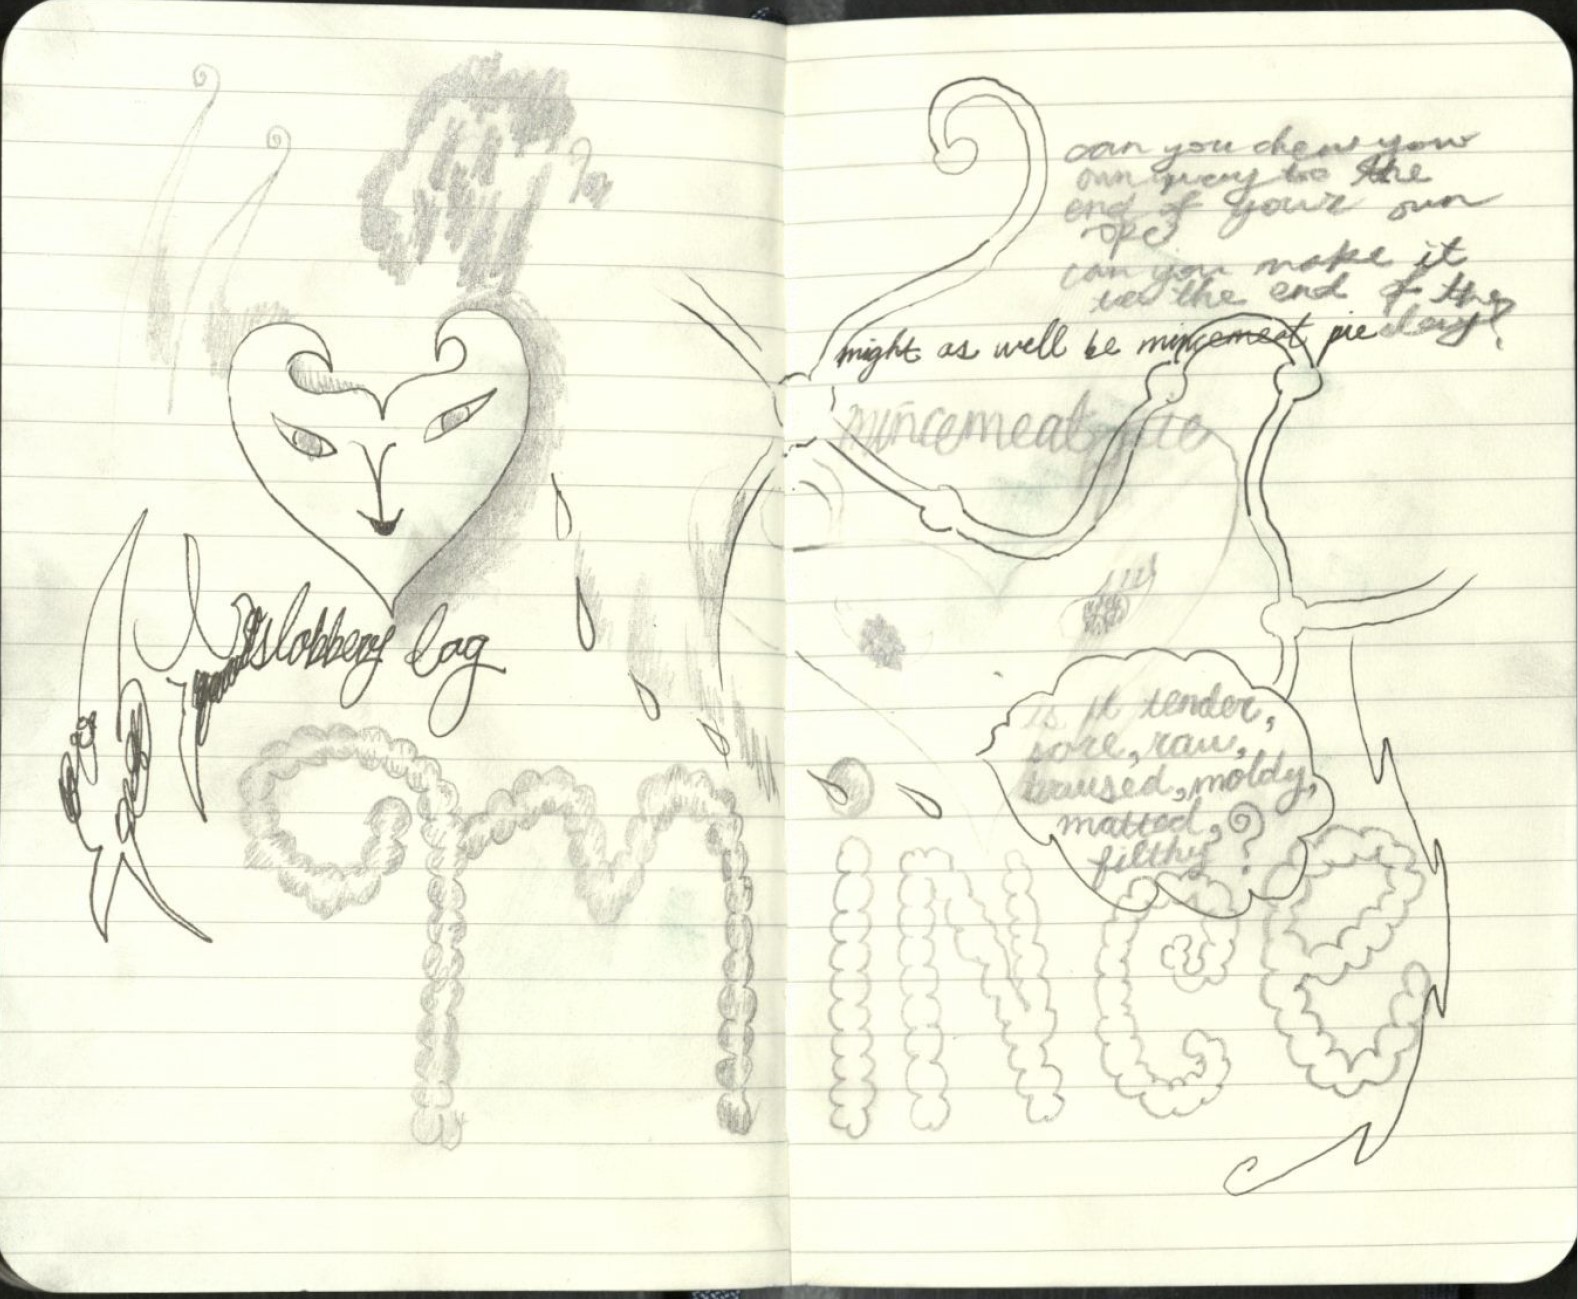 slobbery
can you chew your
own way to the
end of your own
can you make it
to the end of the
day?
might as well be mincemeat pie
mincemeat pie
is it tender,
sore, raw,
moldy,
matted,
filthy?
mINCE